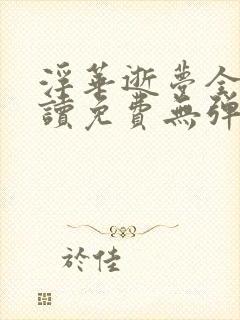 淫華逝夢全
讀免費無彈
於佳